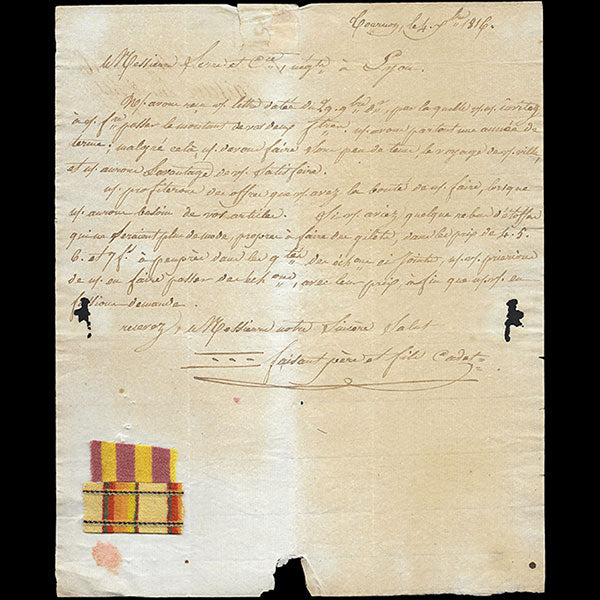 Tournon, le 4 Xbre 1816.
Messieurs Serre et Cie, négts à Lyon.
Ns. avons reçu vs. lettre datée du 29 9bre dr., par laquelle vs. ns. invitez
à vs. fre passer le montant de vos deux ftres. ns. avons partout une année de
terme; malgré cela ns. devons faire dans peu de tems, le voyage de vs. ville,
et ns. aurons l'avantage de vs. satisfaire.
ns. profiterons des offres que vs. avez la bonté de ns. faire, lorsque
ns. aurons besoin de vos articles. Si vs. aviez quelque rebus d'étoffes
qui ne seraient plus de mode, propres à faire des gilets, dans les prix de 4. 5.
6. et 7 fs. à peu près dans les qtés des échons ci joints, ns. vs. prierions
de ns. en faire passer des échons, avec leur prix, afin que ns. vs. en
fassions demande.
recevez Messieurs notre Sincère Salut
faisant père et fils Cadet